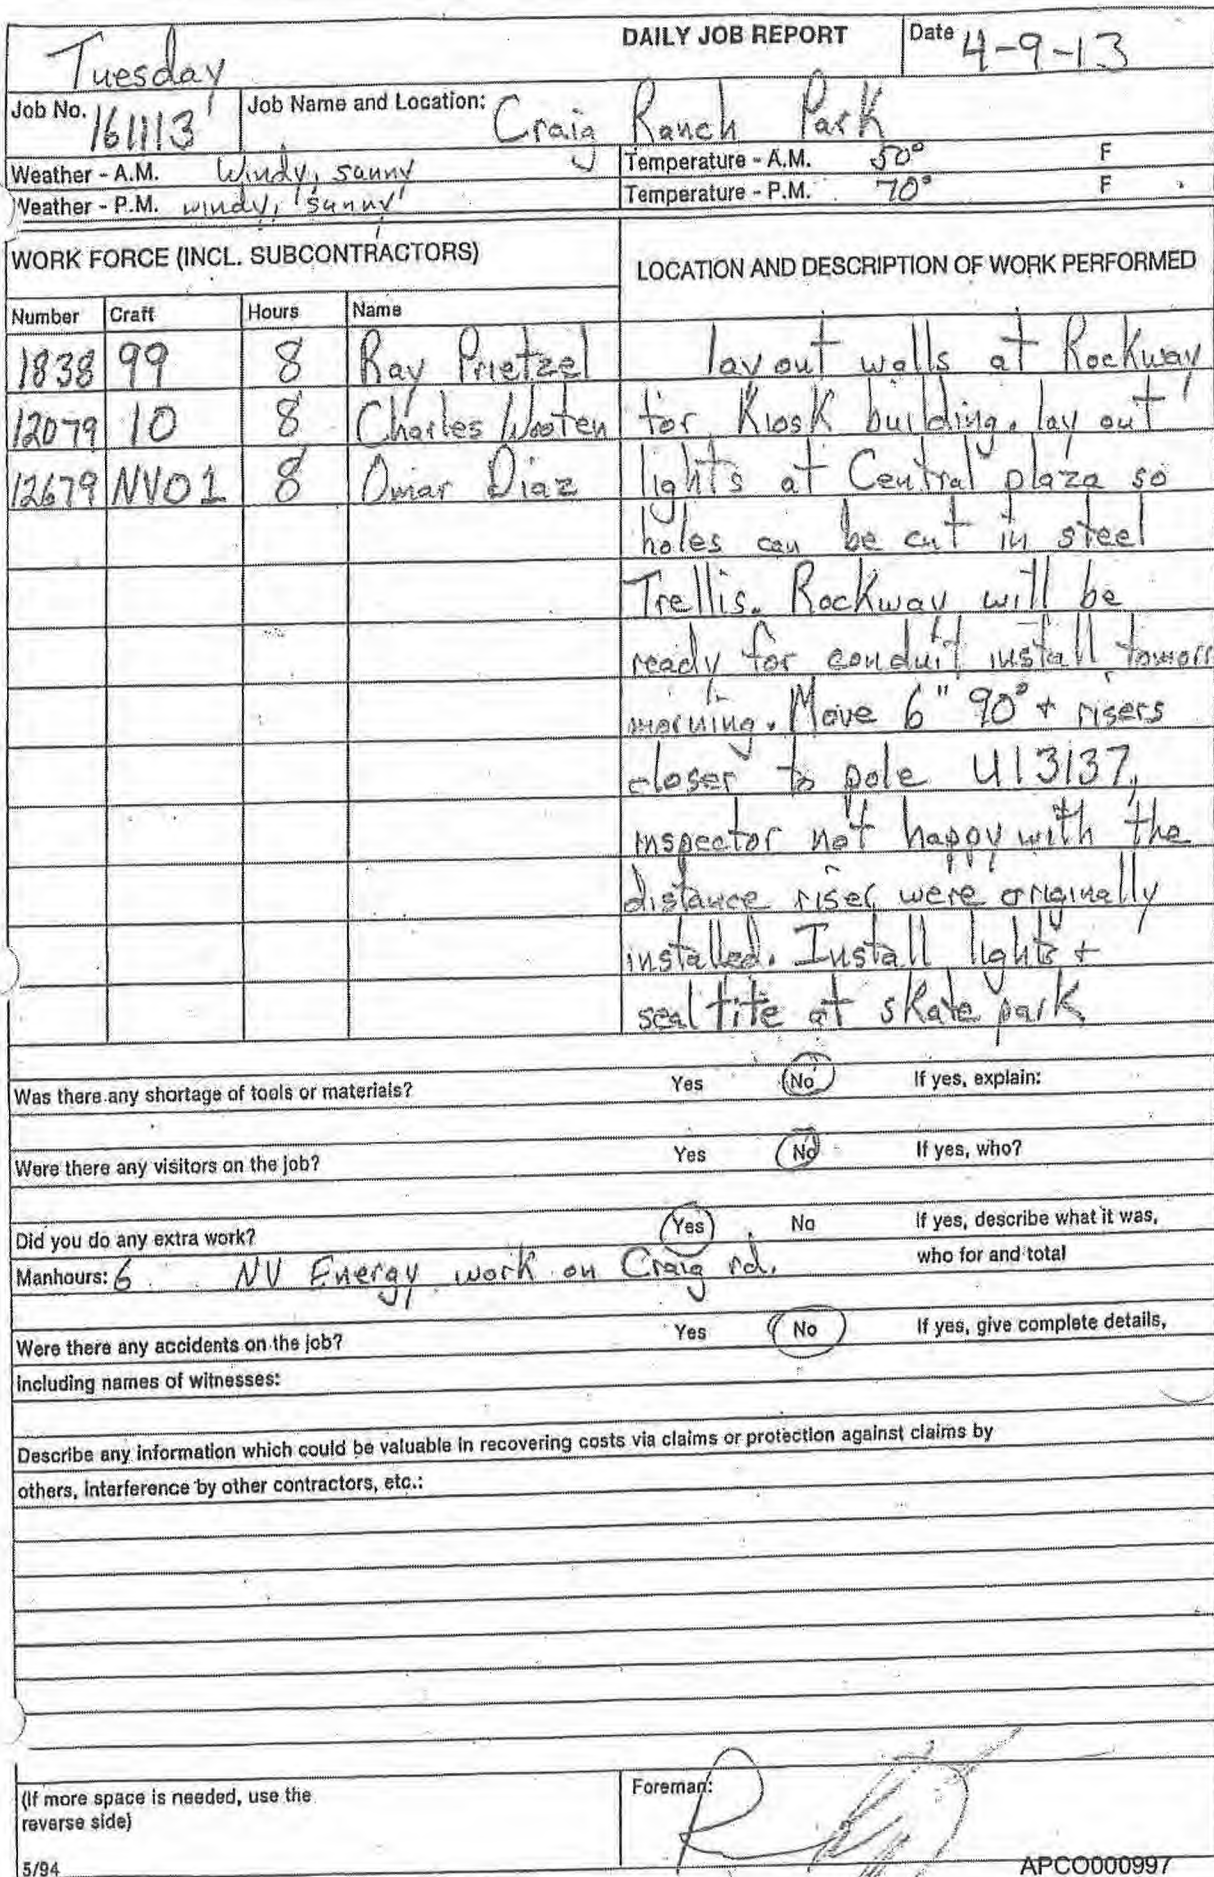 Tuesday
DAILY JOB REPORT
Date 4-9-13
Job No. 161113
Job Name and Location: Craig Ranch Park
Weather - A.M. Windy, sunny
Temperature - A.M. 50° F
Weather - P.M. windy, sunny
Temperature - P.M. 70° F
WORK FORCE (INCL. SUBCONTRACTORS)
LOCATION AND DESCRIPTION OF WORK PERFORMED
Number Craft Hours Name
1838 99 8 Ray Prietzel
12079 10 8 Charles Wooten
12679 NV01 8 Omar Diaz
lay out walls at Rockway
for Kiosk building. lay out
lights at Central plaza so
holes can be cut in steel
Trellis. Rockway will be
ready for conduit install tomorr
morning. Move 6" 90° + risers
closer to pole U13137,
inspector not happy with the
distance riser were originally
installed. Install lights +
seal tite at skate park
Was there any shortage of tools or materials? Yes No If yes, explain:
Were there any visitors on the job? Yes No If yes, who?
Did you do any extra work? Yes No If yes, describe what it was,
who for and total
Manhours: 6 NV Energy work on Craig rd.
Were there any accidents on the job? Yes No If yes, give complete details,
including names of witnesses:
Describe any information which could be valuable in recovering costs via claims or protection against claims by
others, interference by other contractors, etc.:
(If more space is needed, use the
reverse side)
Foreman:
5/94
APCO000997